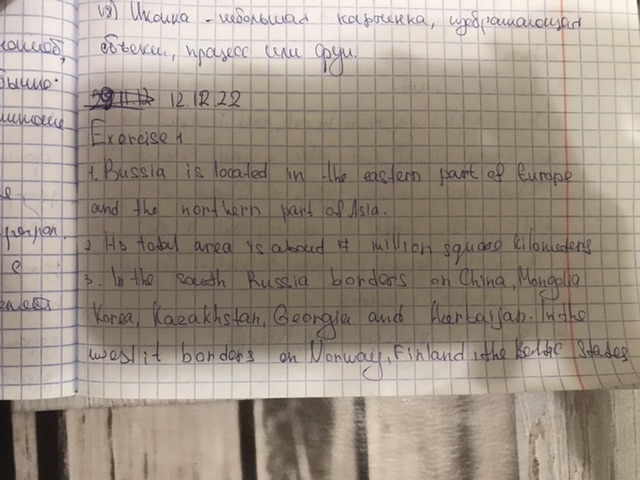 18) Иконка - небольшая картинка, изображающая
объект, процесс или функ.
12.12.22
Exercise 1
1. Russia is located in the eastern part of Europe
and the northern part of Asia.
2. Its total area is about 17 million square kilometers
3. In the south Russia borders on China, Mongolia
Korea, Kazakhstan, Georgia and Azerbaijan. In the
west it borders on Norway, Finland, the Baltic States,